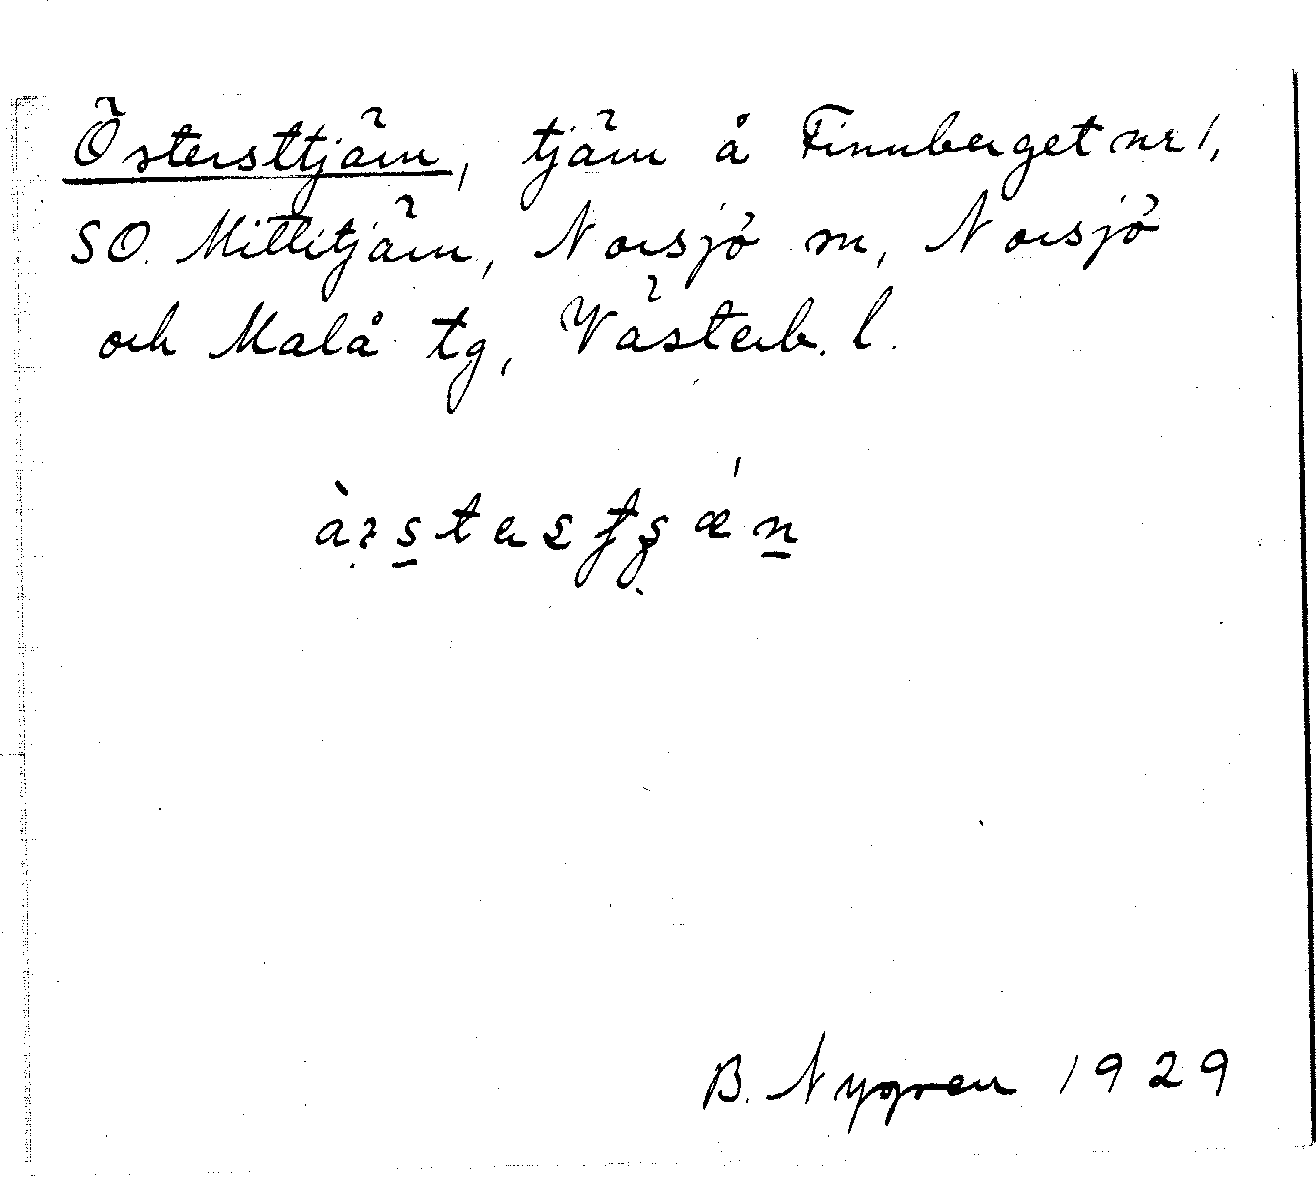 Östersttjärn, tjärn å Finnberget nr 1,
SO. Mittitjärn, Norsjö sn, Norsjö
och Malå tg, Västerb. l.
B. Nygren 1929